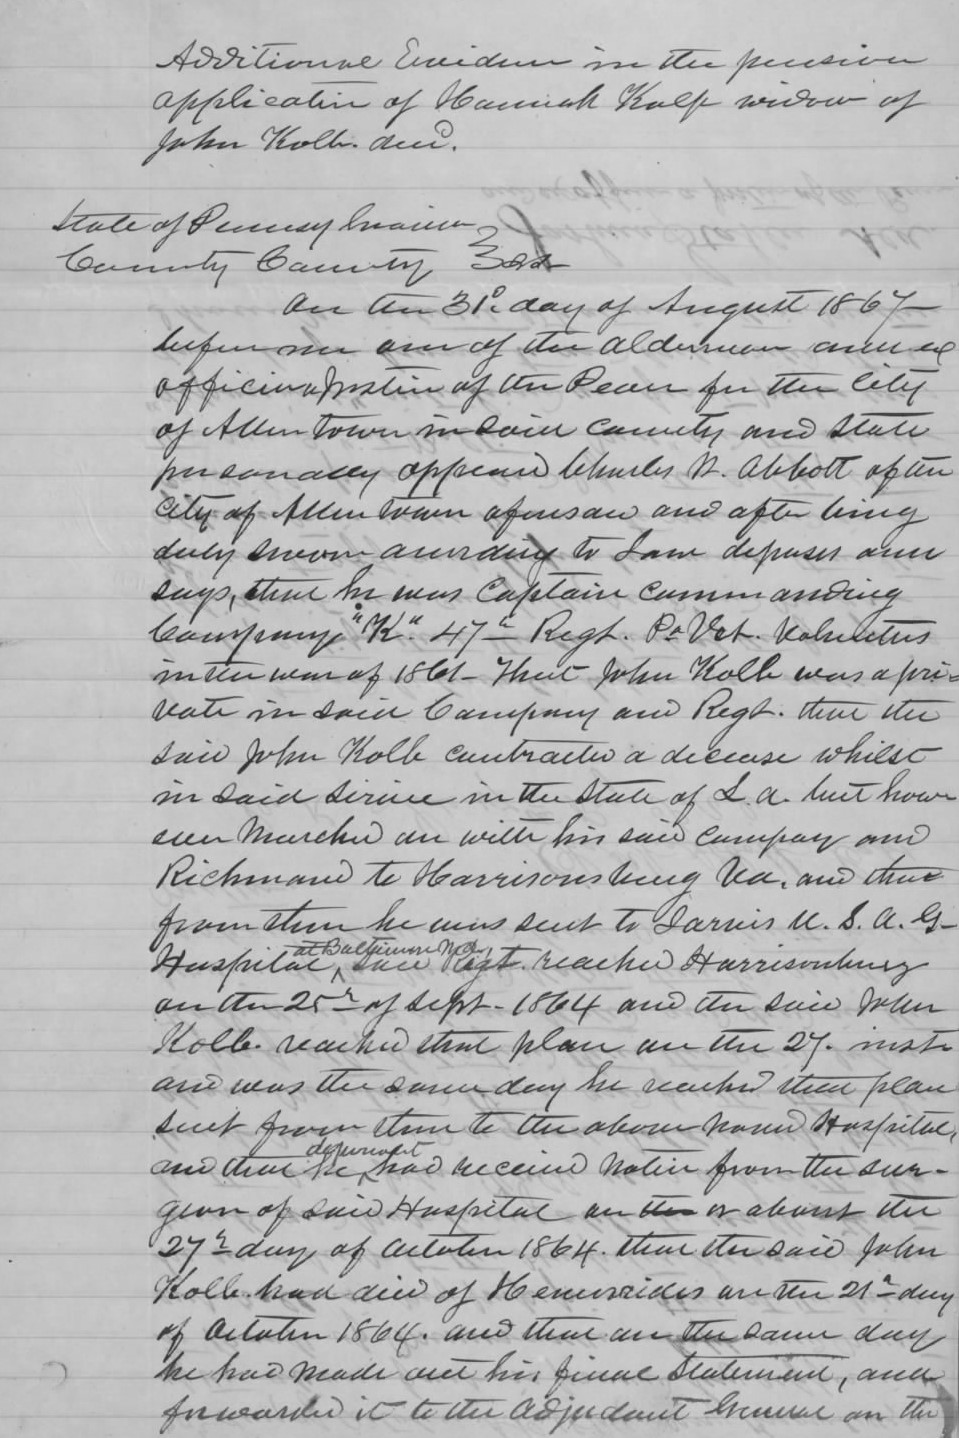 Additional Evidence in the pension
application of Hannah Kolb widow of
John Kolb. decd.
State of Pennsylvania
County County } SS
On the 31st day of August 1867
before me one of the alderman and ex
officio a Justice of the Peace for the City
of Allentown in said County and State
personally appeared Charles W. Abbott of the
City of Allentown aforesaid and after being
duly sworn according to Law deposes and
says, that he was Captain commanding
Company "K". 47th Regt. Pa Vet. Volunteers
in the war of 1861 - That John Kolb was a pri=
vate in said Company and Regt. that the
said John Kolb contracted a decease whilst
in said service in the State of L.a. but how
ever Marched on with his said company and
Richmand to Harrisonsburg Va. and that
from then he was sent to Jarvis U. S. A. G-
Hospital, at Baltimore Md, said Regt. reached Harrisonburg
on the 25th of Sept - 1864 and the said John
Kolb. reached that place on the 27. inst
and was the same day he reached that place
sent from then to the above named Hospital,
and that he deponent had received Notice from the sur-
geon of said Hospital on the or about the
27th day of October 1864. that the said John
Kolb had died of Hemorrides on the 21st day
of October 1864. and that on the same day
he had made out his final Statement, and
forwarded it to the Adjudant General on the